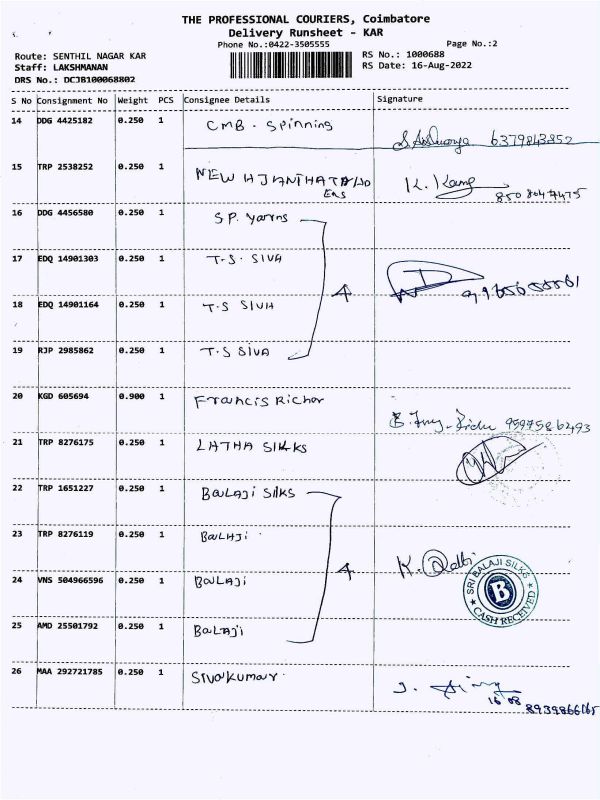 THE PROFESSIONAL COURIERS, Coimbatore
Delivery Runsheet - KAR
Phone No.:0422-3505555
Page No.:2
Route: SENTHIL NAGAR KAR
RS No.: 1000688
Staff: LAKSHMANAN
RS Date: 16-Aug-2022
DRS No.: DCJB100068802
S No Consignment No Weight PCS Consignee Details Signature
14 DDG 4425182 0.250 1 CMB. Spinning
6379843852
15 TRP 2538252 0.250 1 NEW
K.
16 DDG 4456580 0.250 1 SP. Yarns
17 EDQ 14901303 0.250 1 T.S. SIVA
4
18 EDQ 14901164 0.250 1 T.S SIVA
19 RJP 2985862 0.250 1 T.S SIVA
20 KGD 605694 0.900 1 Francis Richar
9597586493
21 TRP 8276175 0.250 1 LATHA SILKS
22 TRP 1651227 0.250 1 BALAJi SILKS
23 TRP 8276119 0.250 1 BALAJi
4 K.
SRI BALAJI SILKS
B
CASH RECEIVED
24 VNS 504966596 0.250 1 BALAJi
25 AMD 25501792 0.250 1 BALAJi
26 MAA 292721785 0.250 1 Sivakumar.
16 08
8939866165